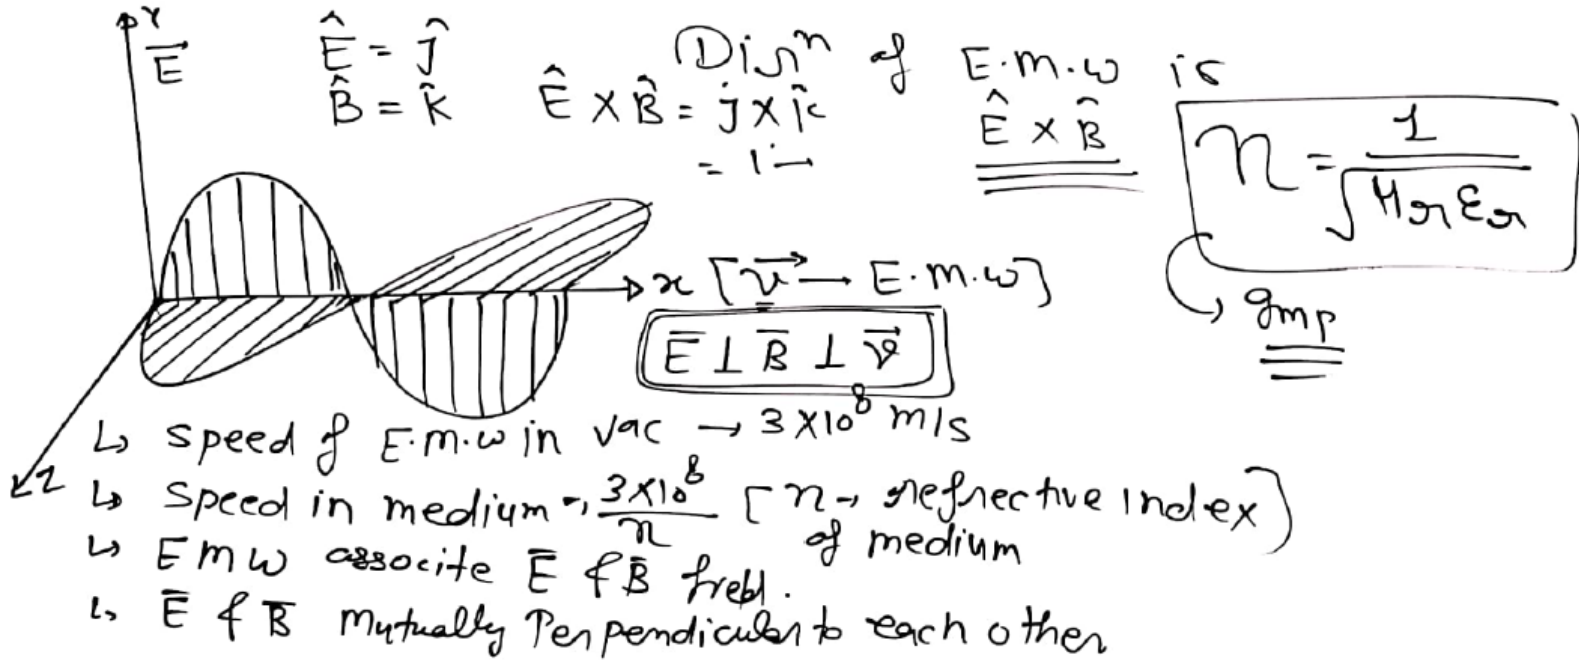 Y
E⃗
Ê = ĵ
B̂ = k̂
Ê × B̂ = j × k̂
= i
Dirⁿ of E.m.w is
Ê × B̂
n = 1/√(μr εr)
Imp
x [v⃗ → E.m.w]
E̅ ⊥ B̅ ⊥ v⃗
Z
↳ speed of E.m.w in vac → 3×10⁸ m/s
↳ speed in medium → 3×10⁸/n [n → refrective index of medium]
↳ E m w associte E̅ & B̅ field.
↳ E̅ & B̅ mutually Perpendicular to each other